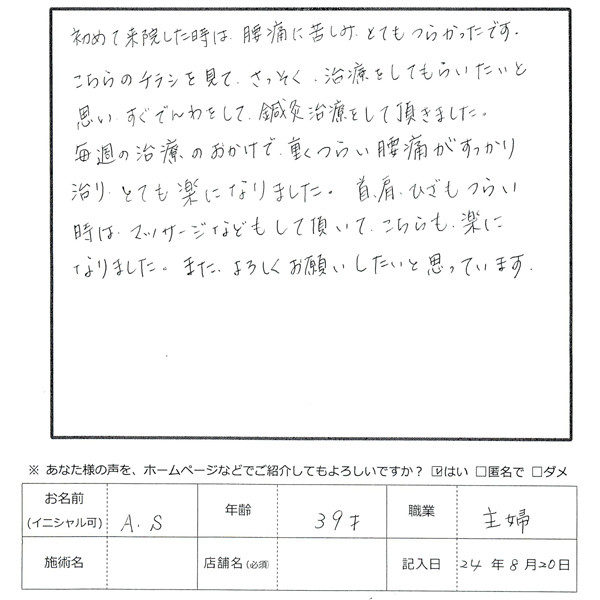 初めて来院した時は、腰痛に苦しみ、とてもつらかったです。
こちらのチラシを見て、さっそく、治療をしてもらいたいと
思い、すぐでんわをして、鍼灸治療をして頂きました。
毎週の治療のおかけで、重くつらい腰痛がすっかり
治り、とても楽になりました。首、肩、ひざもつらい
時は、マッサージなどもして頂いて、こちらも、楽に
なりました。また、よろしくお願いしたいと思っています。
※ あなた様の声を、ホームページなどでご紹介してもよろしいですか？ ☑はい □匿名で □ダメ
お名前
(イニシャル可) A.S 年齢 39才 職業 主婦
施術名 店舗名(必須) 記入日 24年8月20日